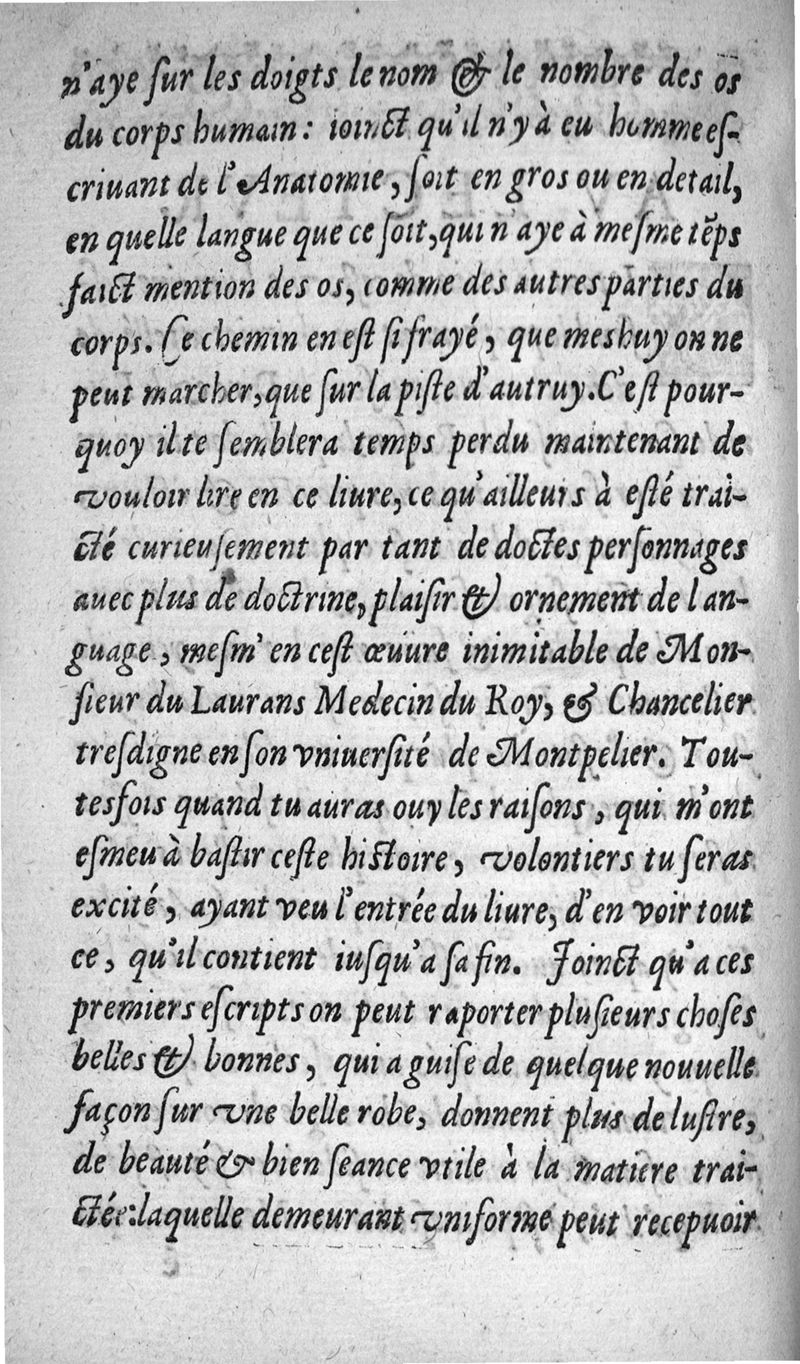 n'aye ſur les doigts le nom & le nombre des os
du corps humain: ioinct qu'il n'y à eu homme eſ-
criuant de l'Anatomie, ſoit en gros ou en detail,
en quelle langue que ce ſoit, qui n'aye à meſme tẽps
faict mention des os, comme des autres parties du
corps. Ce chemin en eſt ſi frayé, que meshuy on ne
peut marcher, que ſur la piſte d'autruy. C'eſt pour-
quoy il te ſemblera temps perdu maintenant de
vouloir lire en ce liure, ce qu'ailleurs à eſté trai-
cté curieuſement par tant de doctes perſonnages
auec plus de doctrine, plaiſir & ornement de lan-
guage, meſm' en ceſt œuure inimitable de Mon-
ſieur du Laurans Medecin du Roy, & Chancelier
treſdigne en ſon vniuerſité de Montpelier. Tou-
tesfois quand tu auras ouy les raiſons, qui m'ont
eſmeu à baſtir ceſte hiſtoire, volontiers tu ſeras
excité, ayant veu l'entrée du liure, d'en voir tout
ce, qu'il contient iuſqu'a ſa fin. Joinct qu'a ces
premiers eſcripts on peut raporter pluſieurs choſes
belles & bonnes, qui a guiſe de quelque nouuelle
façon ſur vne belle robe, donnent plus de luſtre,
de beauté & bien ſeance vtile à la matiere trai-
ctée: laquelle demeurant vniforme peut recepuoir